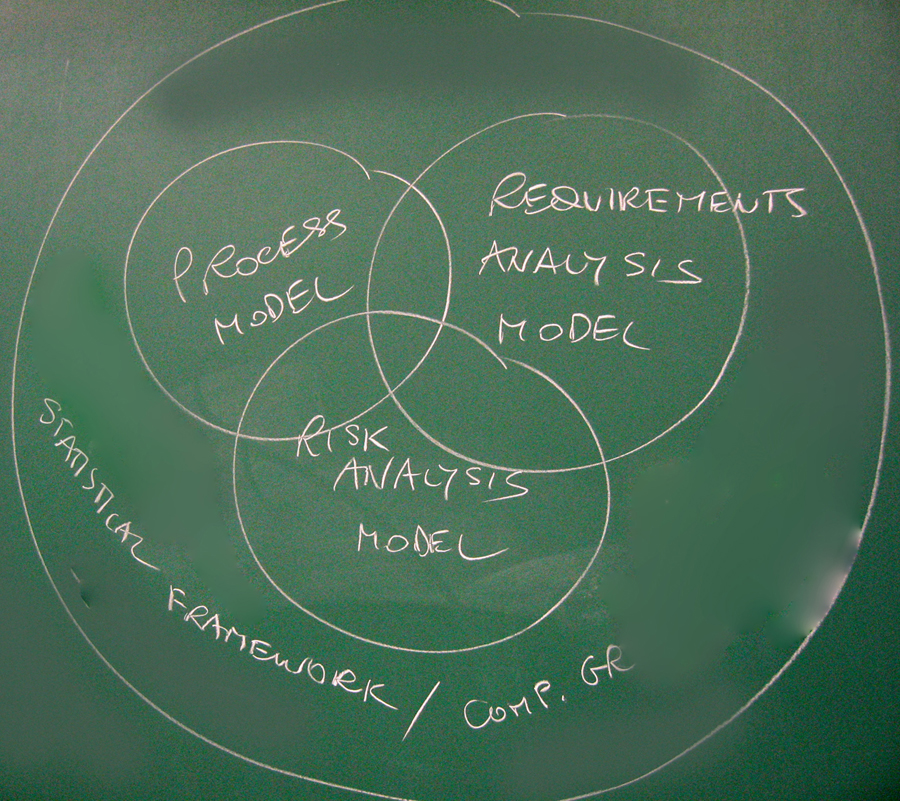 PROCESS
MODEL
REQUIREMENTS
ANALYSIS
MODEL
RISK
ANALYSIS
MODEL
STATISTICAL FRAMEWORK / COMP. GR